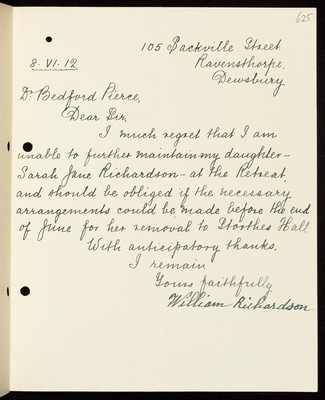 625
105 Sackville Street
Ravensthorpe,
8. VI. 12
Dewsbury
Dr Bedford Pierce,
Dear Sir,
I much regret that I am
unable to further maintain my daughter –
Sarah Jane Richardson – at the Retreat,
and should be obliged if the necessary
arrangements could be made before the end
of June for her removal to Storthes Hall
With anticipatory thanks.
I remain
Yours faithfully
William Richardson